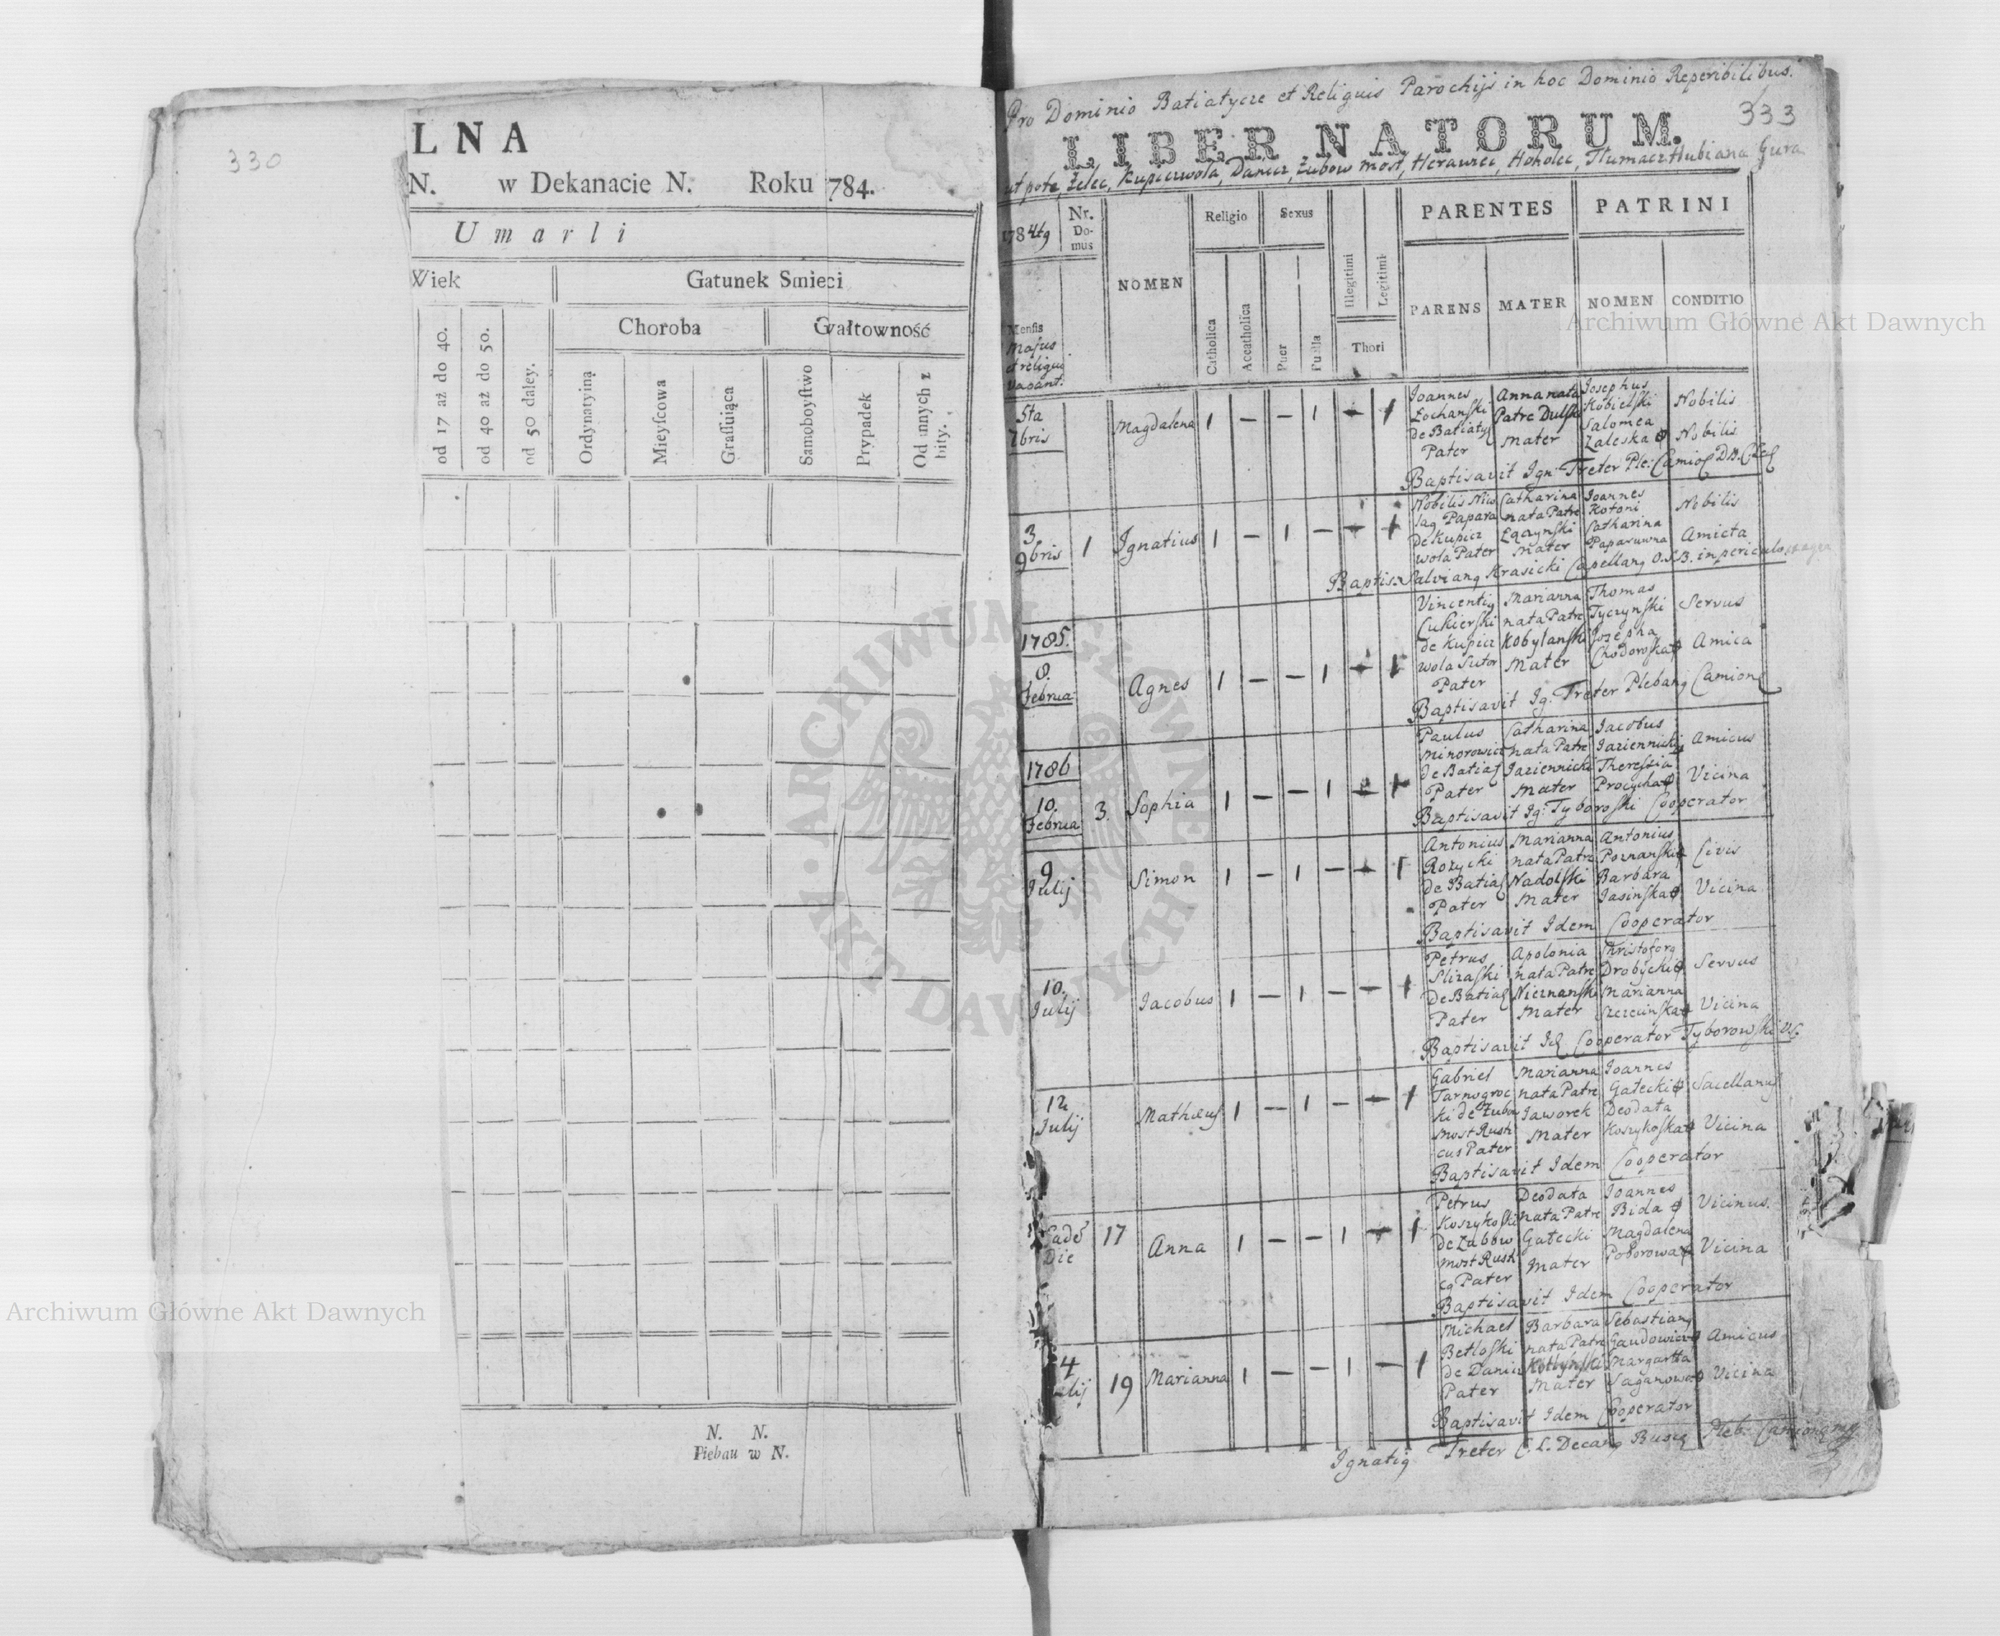 330
LNA
N. w Dekanacie N. Roku 784.
Umarli
Wiek
Gatunek Smieci
Choroba
Gwałtowność
od 17 aż do 40.
od 40 aż do 50.
od 50 daley.
Ordynatyiną
Mieyſcowa
Graſſuiąca
Samoboyſtwo
Prypadek
Od innych z
bity.
N. N.
Plebau w N.
Pro Dominio Batiatycze et Reliquis Parochijs in hoc Dominio Reperibilibus.
333
LIBER NATORUM.
ut pote Zelec, Kupiczwola, Danicz, Zubow most, Herawec, Hoholec, Tłumacz Hubiana Gura
1784to
Nr.
Do-
mus
NOMEN
Religio
Sexus
PARENTES
PATRINI
Mensis
Majus
et reliqui
vacant.
Catholica
Acatholica
Puer
Puella
Illegitimi
Legitimi
Thori
PARENS
MATER
NOMEN
CONDITIO
5ta
7bris
Magdalena 1 — — 1 — 1
Joannes Anna nata Josephus
Łochanski Patre Dulski Kobielski Nobilis
de Batiatyc Mater Salomea
Pater Zaleska Nobilis
Baptisavit Ign: Treter Ple:
3
9bris
1 Ignatius 1 — 1 — — 1
Nobilis Catharina Joannes
Papara nata Patre Kotoni Nobilis
de Kupicz Łączynski Catharina
wola Pater Mater Paparuwna Amicta
Krasicki Capellanq O.S.B. in periculo
1785.
8.
Februa
Agnes 1 — — 1 — 1
Vincentiq Marianna Thomas
Cukierski nata Patre Tyczynski Servus
de Kupicz Kobylanski Jozepha
wola Sutor Mater Chodoroska Amica
Pater
Baptisavit Ig: Treter Plebanq Camionc
1786
10.
Februa
3. Sophia 1 — — 1 — 1
Paulus Catharina Jacobus
Minorowicz nata Patre Jaziennicki Amicus
de Batiac Jaziennicki Theressia
Pater Mater Procycka Vicina
Baptisavit Ig: Tyboroski Cooperator
9
Julij
Simon 1 — 1 — — 1
Antonius Marianna Antonius
Rozycki nata Patre Poznanski Civis
de Batiac Nadolski Barbara
Pater Mater Jasinska Vicina
Baptisavit Idem Cooperator
10.
Julij
Jacobus 1 — 1 — — 1
Petrus Apolonia Christoforq
Slizaski nata Patre Drobycki Servus
De Batiac Nieznanski Marianna
Pater Mater Szczcinska Vicina
Baptisavit Id Cooperator Tyborowski
12
Julij
Mathæus 1 — 1 — — 1
Gabriel Marianna Joannes
Tarnogroc nata Patre Gałecki Sacellanus
ki de Zubow Jaworek Deodata
Most Rusti Mater Koszykoska Vicina
cus Pater
Baptisavit Idem Cooperator
Eadē
Die
17 Anna 1 — — 1 — 1
Petrus Deodata Joannes
Koszykoski nata Patre Bida Vicinus.
de Zubow Gałecki Magdalena
most Rusti Mater Poborowa Vicina
cq Pater
Baptisavit Idem Cooperator
4
Julij
19 Marianna 1 — — 1 — 1
Michael Barbara Sebastianq
Betloski nata Patre Gaudowicz Amicus
de Danicz Kotlynski Margartta
Pater Mater Saganowa Vicina
Baptisavit Idem Cooperator
Ignatiq Treter C. L. Decanq Buscq Pleb:
Archiwum Główne Akt Dawnych
Archiwum Główne Akt Dawnych
ARCHIWUM GŁÓWNE
AKT DAWNYCH